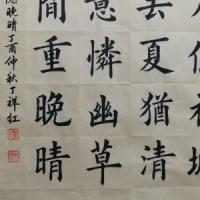 城
去夏猶清
意憐幽草
間重晚晴
晚晴丁酉仲秋丁祥红